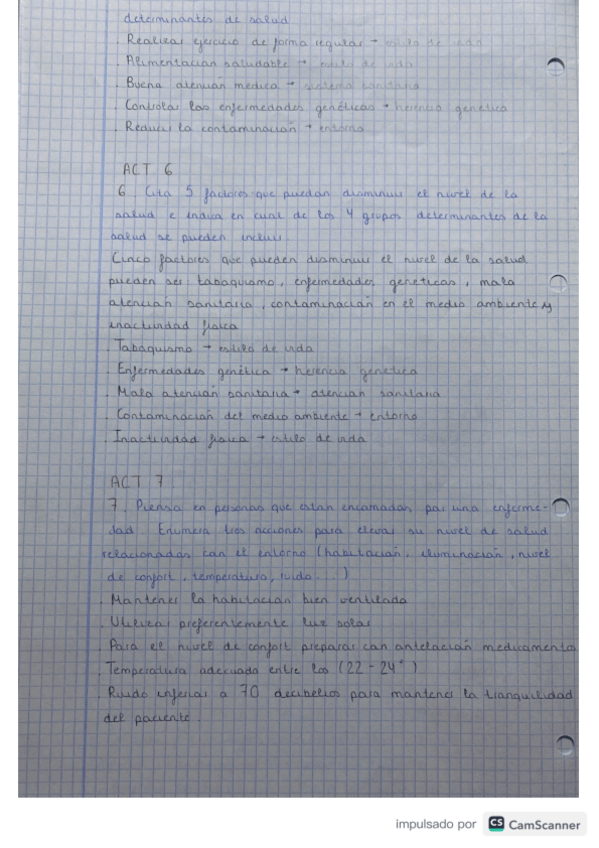 determinantes de salud
. Realizar ejercicio de forma regular → estilo de vida
. Alimentación saludable → estilo de vida
. Buena atención médica → sistema sanitario
. Controlar las enfermedades genéticas → herencia genética
. Reducir la contaminación → entorno
ACT 6
6. Cita 5 factores que puedan disminuir el nivel de la
salud e indica en cual de los 4 grupos determinantes de la
salud se pueden incluir.
Cinco factores que pueden disminuir el nivel de la salud
pueden ser: tabaquismo, enfermedades genéticas, mala
atención sanitaria, contaminación en el medio ambiente y
inactividad física
. Tabaquismo → estilo de vida
. Enfermedades genética → herencia genética
. Mala atención sanitaria → atención sanitaria
. Contaminación del medio ambiente → entorno
. Inactividad física → estilo de vida
ACT 7
7. Piensa en personas que están encamadas por una enferme-
dad. Enumera tres acciones para elevar su nivel de salud
relacionadas con el entorno (habitación, iluminación, nivel
de confort, temperatura, ruido...)
. Mantener la habitación bien ventilada
. Utilizar preferentemente luz solar
. Para el nivel de confort preparar con antelación medicamentos
. Temperatura adecuada entre los (22-24°)
. Ruido inferior a 70 decibelios para mantener la tranquilidad
del paciente.
impulsado por CS CamScanner